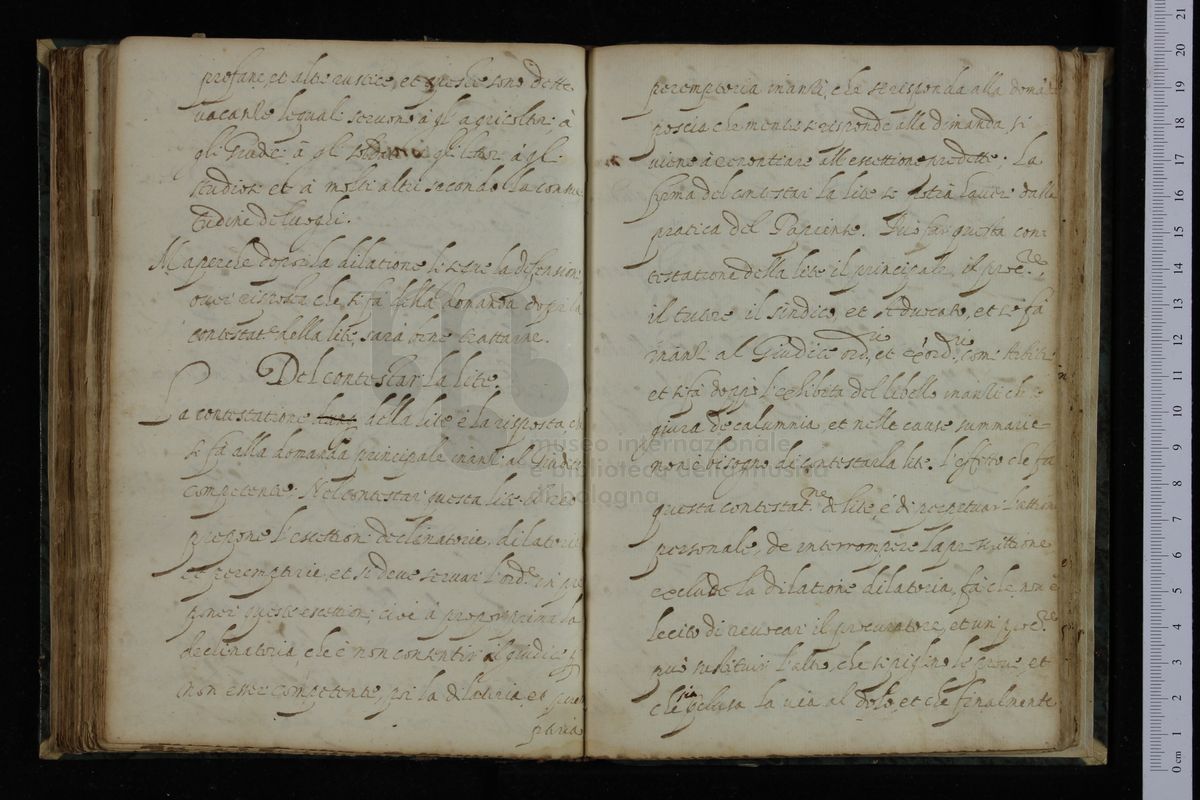 profane, et altre rustice, et queste sono dette
vacanze lequali servono a gl' agricoltori, à
gl' à gl' à gl'
studiosi et à molti altri secondo la consue
tudine de luoghi.
Ma perche doppo la dilatione si segue la difensione,
over risposta che si fa della domanda doppo la
contestat.e della lite, sarà bene trattarne.
Del contestar la lite.
La contestatione della lite è la risposta, che
si fà alla domanda principale inanzi al Giudice
competente. Nel contestar questa lite il Reo
propone l'escettioni declinatorie, dilatorie
et peremptorie, et si deve servar l'ord.e in pro
poner queste escettioni, cioè à proporr prima la
declinatoria, che è non consentir al giudice p
non esser competente, poi la dilatoria, et perem
ptoria
peremptoria inanzi, che si risponda alla doman
poscia che mentre si risponde alla dimanda si
viene à renontiare all' escettione predette. La
forma del contestar la lite si potrà haver dalla
pratica del Può far questa con
testatione della lite il principale, il proc.re,
il tutore il sindico, et Advocato, et si fa
inanzi al Giudice ord.rio, et exord.rio, com Arbitri
et si fà doppo l'exhibita del libello inanzi che si
giura de calumnia, et nelle cause summarie
non è bisogno di contestar la lite. l'effetto che fa
questa contestat.ne de lite, è di perpetuar l'attione
personale, de interrompere la prescrittione
exclude la dilatione dilatoria, fà che non è
lecito di revocar il procuratore, et un proc.re
può sustituir l'altro, che si piglino le prove, et
che sia chiusa la via al dolo, et che finalmente
museo internazionale
e biblioteca della musica
di bologna
0 cm 1 2 3 4 5 6 7 8 9 10 11 12 13 14 15 16 17 18 19 20 21